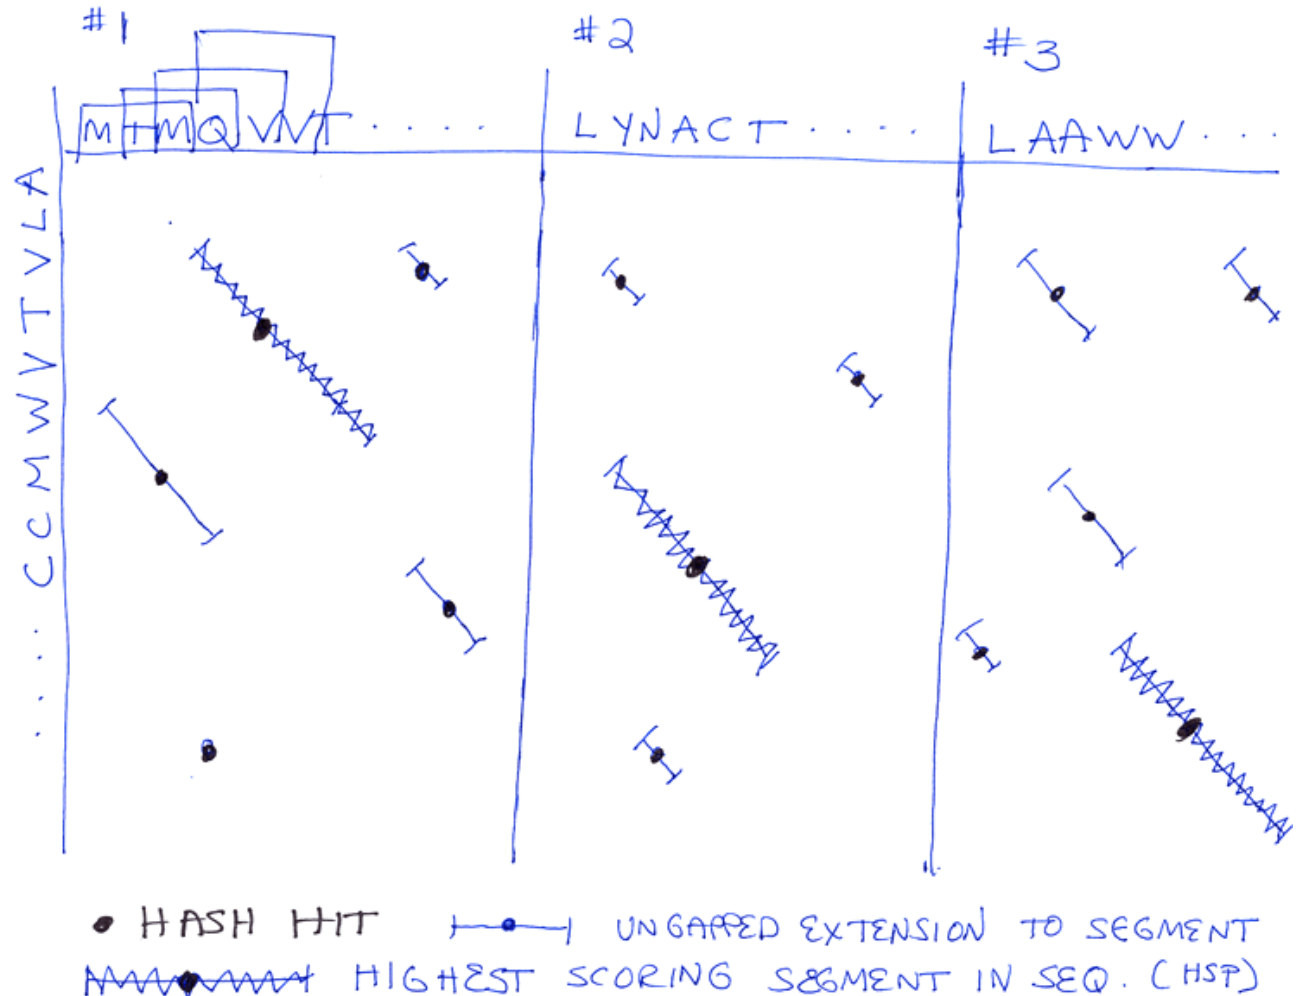 #1
#2
#3
MTMQVVT.....
LYNACT.....
LAAWW...
....CCMWVTVLA
HASH HIT
UNGAPPED EXTENSION TO SEGMENT
HIGHEST SCORING SEGMENT IN SEQ. (HSP)